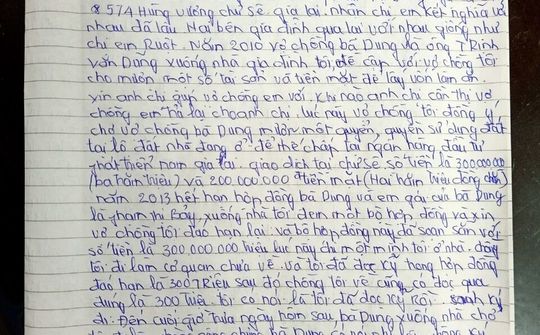 8 574 Hùng vương chư sê, gia lai. nhân chị em kết nghĩa với
nhau đã lâu Hai bên gia đình qua lại với nhau giống như
chị em Ruột. Năm 2010 vợ chồng bà Dung và ông TRinh
vốn Dung xuống nhà gia đình tôi, đề cập với vợ chồng tôi
cho mượn một số tài sản và tiền mặt để lấy vốn làm ăn.
xin anh chị giúp vợ chồng em với. Khi nào anh chị cần thì vợ chồng
em trả lại cho anh chị. lúc này vợ chồng tôi đồng ý
cho vợ chồng bà Dung mượn một quyển, quyền sử dụng đất
tại lô đất nhà đang ở, để thế chấp tại ngân hàng đầu tư
phát triển nam gia lai. giao dịch tại chư sê số tiền là 300.000.000
(ba trăm triệu) và 200.000.000 tiền mặt (Hai trăm triệu đồng chẵn)
năm 2013 hết hạn hợp đồng bà Dung và em gái của bà Dung
là phạm thị Bảy, xuống nhà tôi đem một bộ hợp đồng và xin
vợ chồng tôi đáo hạn lại. và bộ hợp đồng này đã soạn sẵn với
số tiền là 300.000.000 triệu lúc này chỉ một mình tôi ở nhà. chồng
tôi đi làm cơ quan chưa về. và tôi đã đọc kỹ trong hợp đồng
đáo hạn là 300 TRiệu sau đó chồng tôi về cũng có đọc qua
đúng là 300 Triệu. tôi có nói là tôi đã đọc kỹ Rồi. anh ký
đi. Đến cuối giờ trưa ngày hôm sau bà Dung xuống nhà chở